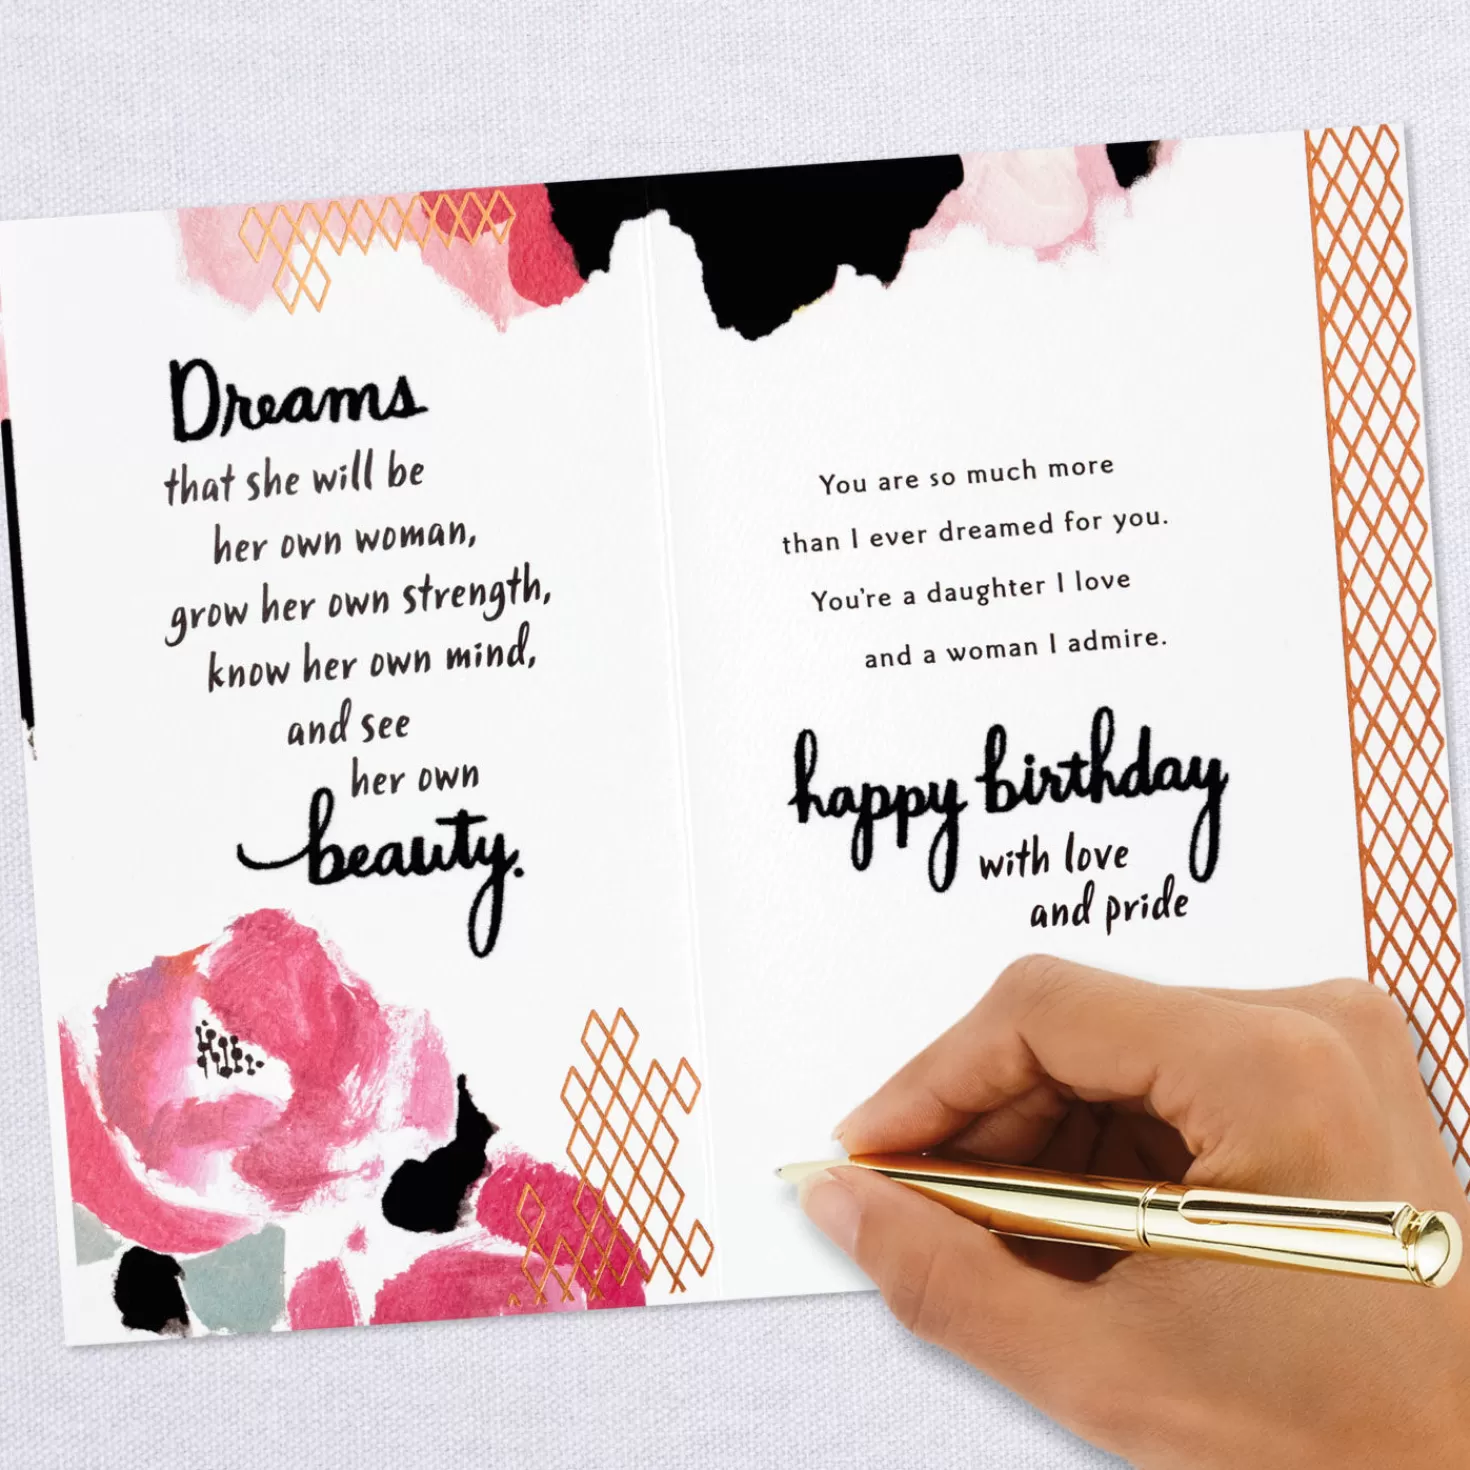 Dreams
that she will be
her own woman,
grow her own strength,
know her own mind,
and see
her own
beauty.
You are so much more
than I ever dreamed for you.
You're a daughter I love
and a woman I admire.
happy birthday
with love
and pride